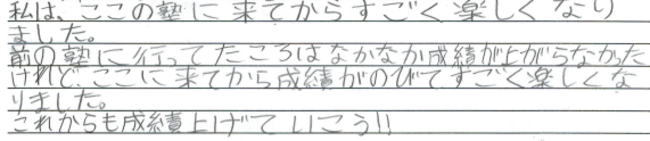 私は、ここの塾に来てからすごく楽しくなり
ました。
前の塾に行ってたころはなかなか成績が上がらなかった
けれど、ここに来てから成績がのびてすごく楽しくな
りました。
これからも成績上げていこう!!